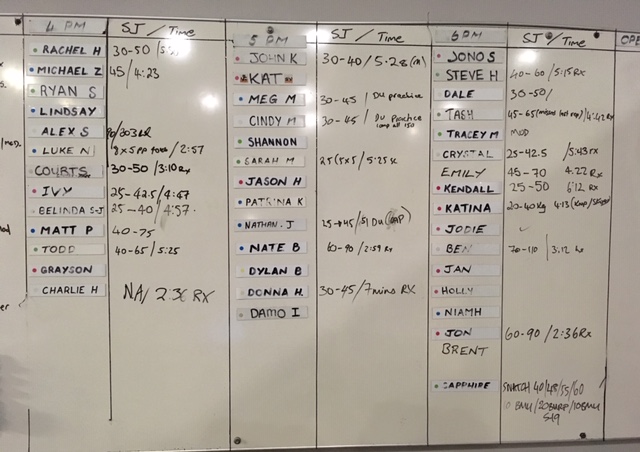 4 PM SJ / Time
RACHEL H 30-50 /
MICHAEL Z 45 / 4:23
RYAN S
LINDSAY
ALEX S
LUKE N / 2:57
COURTS. 30-50 / 3:10 RX
IVY 25-42.5 / 4:47
BELINDA S-J 25-40 / 4:57
MATT P 40-75
TODD 40-65 / 5:25
GRAYSON
CHARLIE H NA / 2:36 RX
5 PM SJ / Time
JOHN K 30-40 / 5:28 (m)
KAT
MEG M 30-45 / DU practice
CINDY M 30-45 / DU Practice
comp all 150
SHANNON
SARAH M 25 (5x5) / 5:25
JASON H
PATRINA K
NATHAN. J 25-45 / 51 DU (CAP)
NATE B 60-90 / 2:59 Rx
DYLAN B
DONNA H. 30-45 / 7mins RX
DAMO I
6 PM SJ / Time
JONO S
STEVE H 40-60 / 5:15 RX
DALE 30-50/
TASH 45-65 / 4:42 RX
TRACEY M MOD
CRYSTAL 25-42.5 / 5:43 RX
EMILY 45-70 4:22 RX
KENDALL 25-50 6:12 RX
KATINA 20-40kg 4:13
JODIE
BEN 70-110 | 3:12
JAN
HOLLY
NIAMH
JON 60-90 / 2:36 Rx
BRENT
SAPPHIRE SNATCH 40/48/55/60
10 BMU / 20 BURP / 10 BMU
5:49
OPE